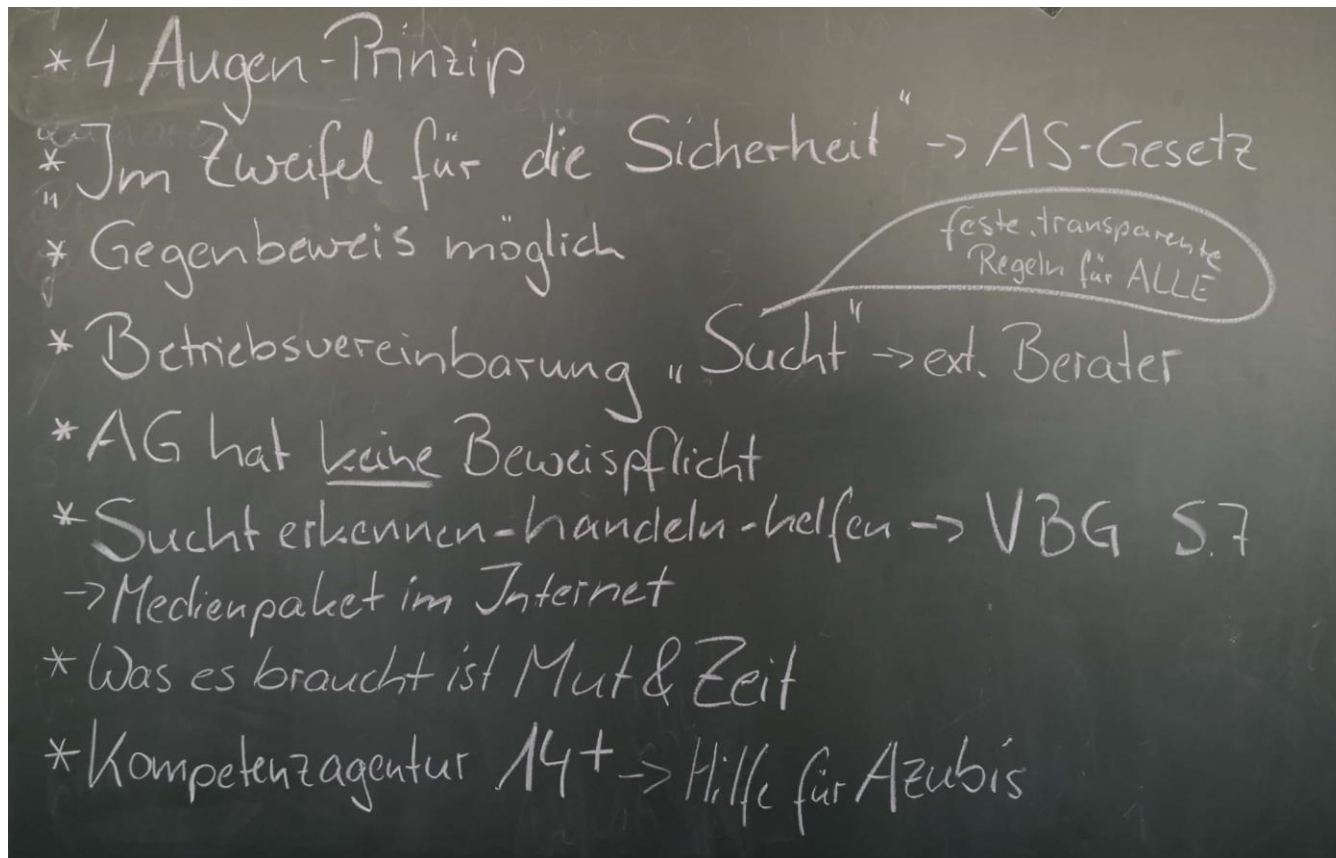 * 4 Augen-Prinzip
* „Im Zweifel für die Sicherheit“ -> AS-Gesetz
* Gegenbeweis möglich
feste, transparente
Regeln für ALLE
* Betriebsvereinbarung „Sucht“ -> ext. Berater
* AG hat keine Beweispflicht
* Sucht erkennen-handeln-helfen -> VBG S.7
-> Medienpaket im Internet
* Was es braucht ist Mut & Zeit
* Kompetenzagentur 14+ -> Hilfe für Azubis